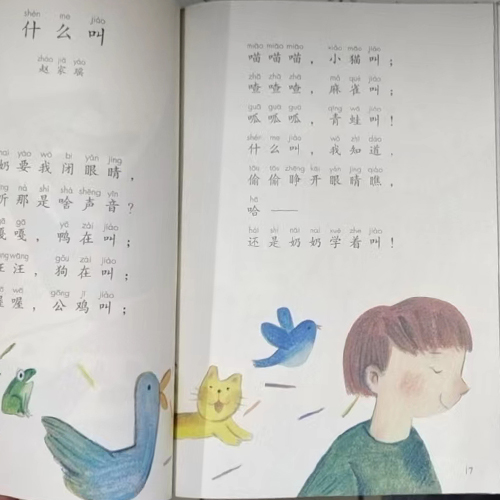 shén me jiào
什么叫
zhào jiā yáo
赵家瑶
nai yào wǒ bì yǎn jing
奶要我闭眼睛，
nà shì shà shēng yīn
听那是啥声音？
gā yā zài jiào
嘎，鸭在叫；
wāng gǒu zài jiào
汪，狗在叫；
gōng jī jiào
喔，公鸡叫；
miāo miāo miāo xiǎo māo jiào
喵喵喵，小猫叫；
zhā zhā zhā má què jiào
喳喳喳，麻雀叫；
guā guā guā qīng wā jiào
呱呱呱，青蛙叫！
shén me jiào wǒ zhī dào
什么叫，我知道，
tōu tōu zhēng kāi yǎn jing qiáo
偷偷睁开眼睛瞧，
hā
哈——
hái shì nǎi nai xué zhe jiào
还是奶奶学着叫！
17